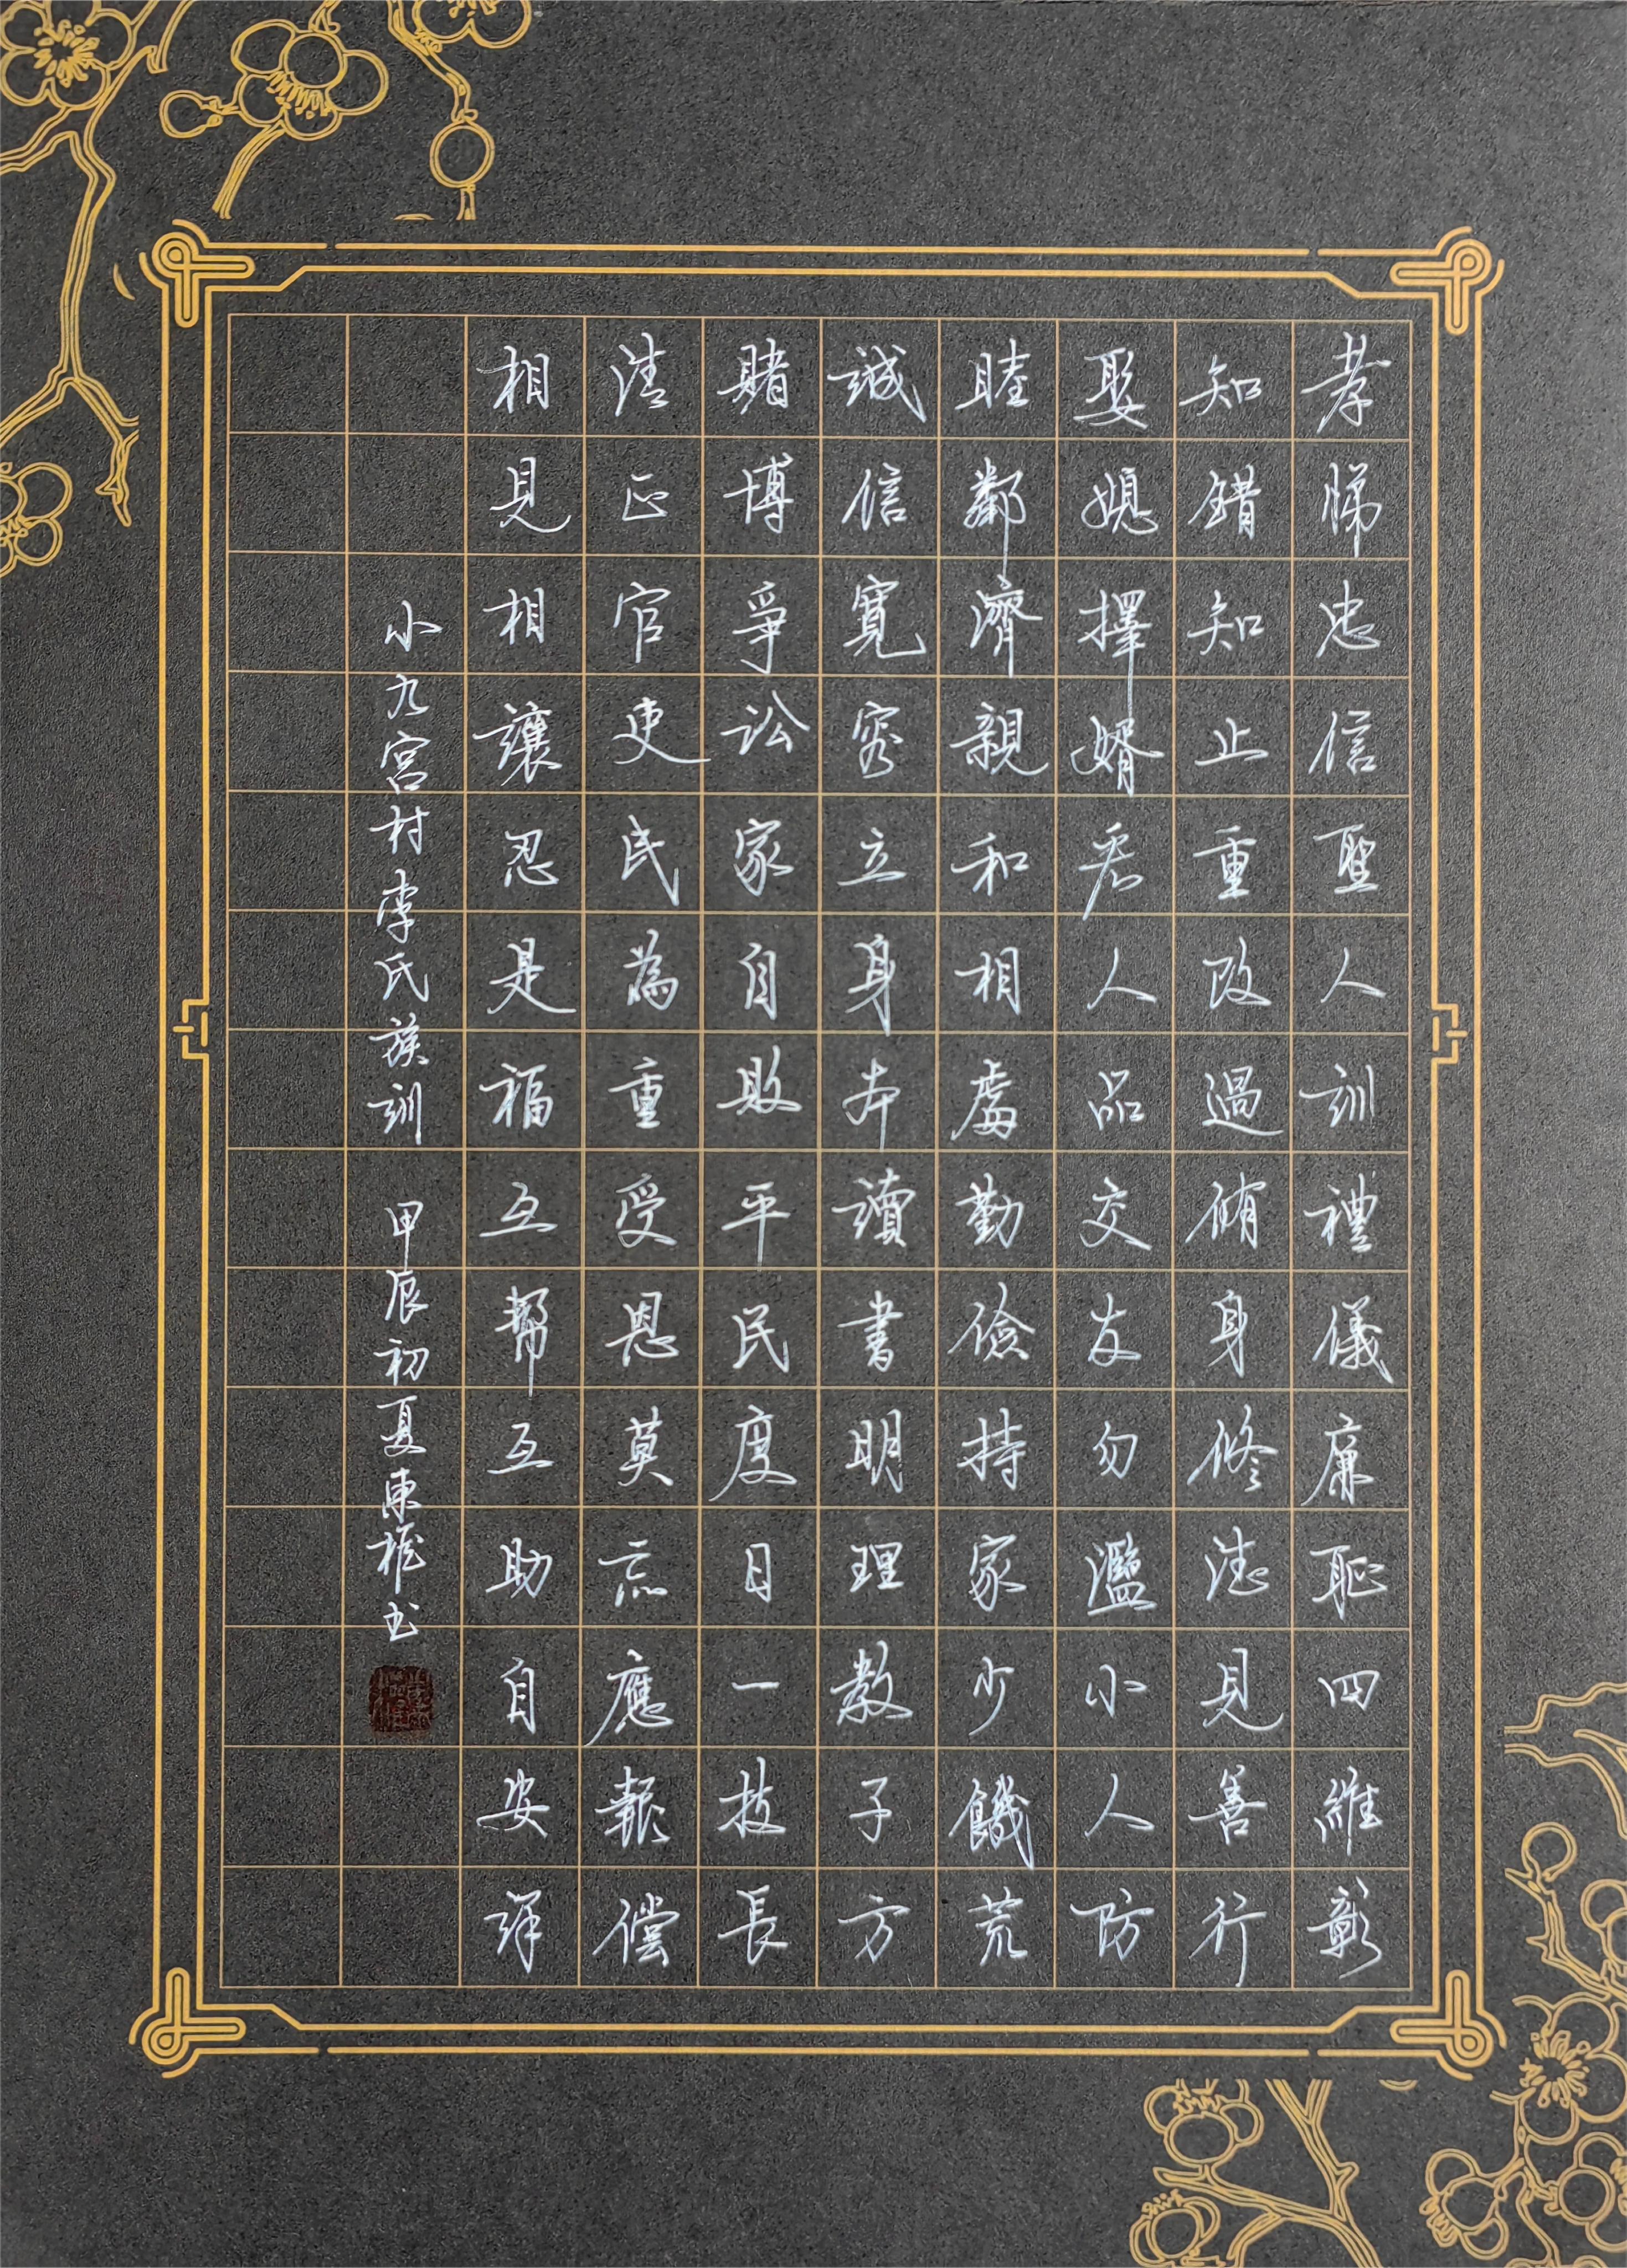 孝悌忠信聖人訓禮儀廉恥四維彰
知錯知止重改過脩身修德見善行
娶媳擇婿看人品交友勿濫小人防
睦鄰濟親和相處勤儉持家少饑荒
誠信寬容立身本讀書明理教子方
賭博爭訟家自敗平民度日一技長
清正官吏民為重受恩莫忘應報償
相見相讓忍是福互幫互助自安詳
小九宮村李氏族訓 甲辰初夏東權书